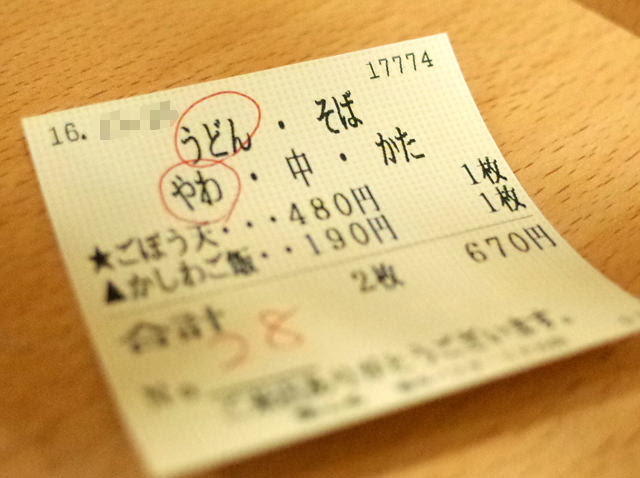 17774
16.
うどん・そば
やわ・中・かた
★ごぼう天・・・480円 1枚
▲かしわご飯・・190円 1枚
合計 2枚 670円
No
ありがとうございます。